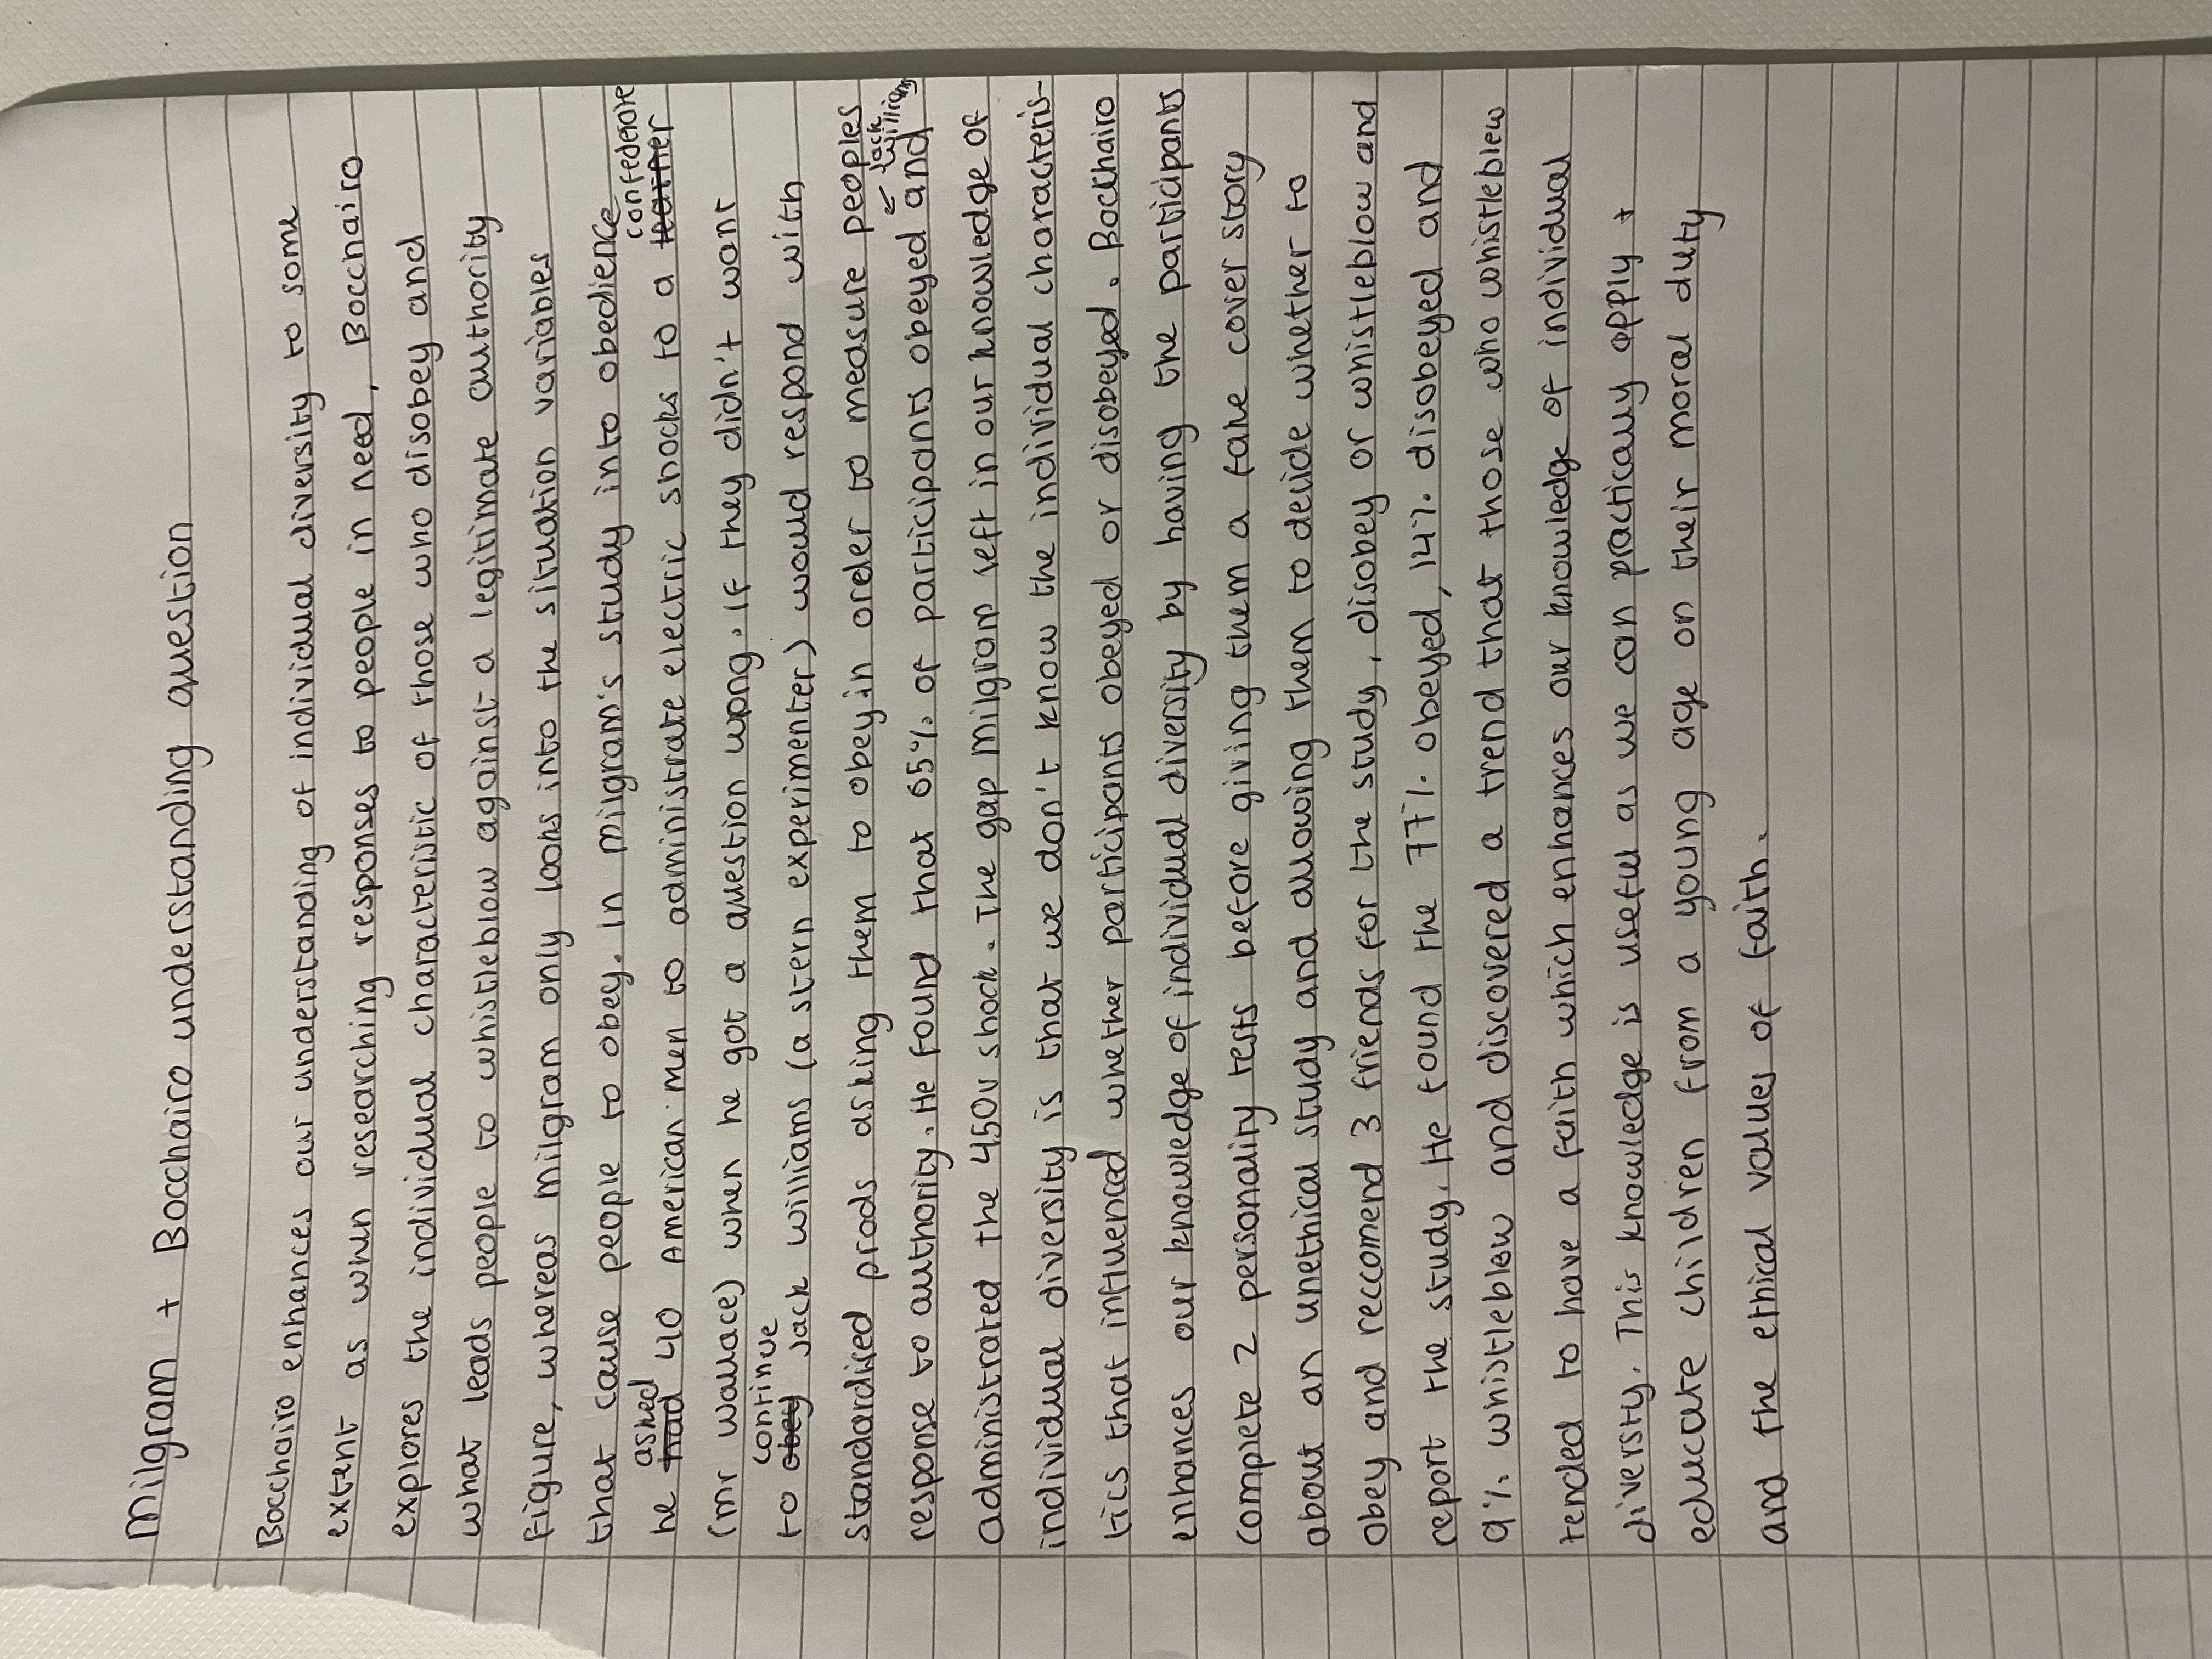 Milgram + Bocchairo understanding question
Bocchairo enhances our understanding of individual diversity to some
extent as when researching responses to people in need, Bocchairo
explores the individual characteristic of those who disobey and
what leads people to whistleblow against a legitimate authority
figure, whereas milgram only looks into the situation variables
that cause people to obey. In milgram's study into obedience
he asked 40 American men to administrate electric shocks to a confederate
(mr wallace) when he got a question wrong. If they didn't want
to continue Jack williams (a stern experimenter) would respond with
standardised prods asking them to obey in order to measure peoples
response to authority. He found that 65% of participants obeyed and
administrated the 450v shock. The gap milgram left in our knowledge of
individual diversity is that we don't know the individual characteris-
tics that influenced whether participants obeyed or disobeyed. Bocchairo
enhances our knowledge of individual diversity by having the participants
complete 2 personality tests before giving them a fake cover story
about an unethical study and allowing them to decide whether to
obey and reccomend 3 friends for the study, disobey or whistleblow and
report the study. He found the 77% obeyed, 14% disobeyed and
9% whistleblow and discovered a trend that those who whistleblew
tended to have a faith which enhances our knowledge of individual
diversity. This knowledge is useful as we can practically apply +
educate children from a young age on their moral duty
and the ethical values of faith.